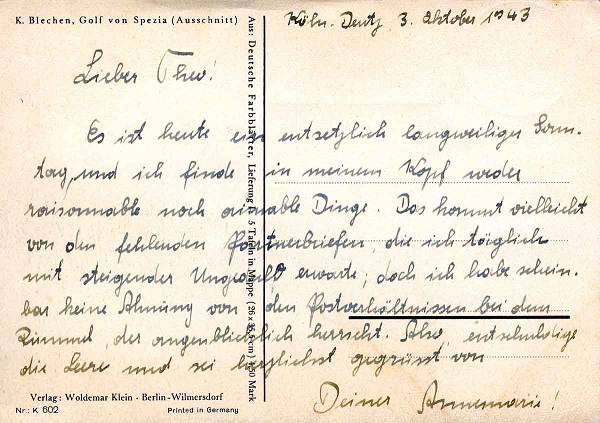 K. Blechen, Golf von Spezia (Ausschnitt)
Köln-Deutz, 3. Oktober 1943
Lieber Theo!
Es ist heute ein entsetzlich langweiliger Sonn-
tag, und ich finde in meinem Kopf weder
raisonnable noch aimable Dinge. Das kommt vielleicht
von den fehlenden Partnerbriefen, die ich täglich
mit steigender Ungeduld erwarte; doch ich habe schein-
bar keine Ahnung von den Postverhältnissen bei dem
Rummel, der augenblicklich herrscht. Also, entschuldige
die Leere und sei herzlichst gegrüsst von
Deiner Annemarie!
Aus: Deutsche Farbblätter, Lieferung 5 Tafeln in Mappe Mark
Verlag: Woldemar Klein · Berlin-Wilmersdorf
Nr.: K 602
Printed in Germany